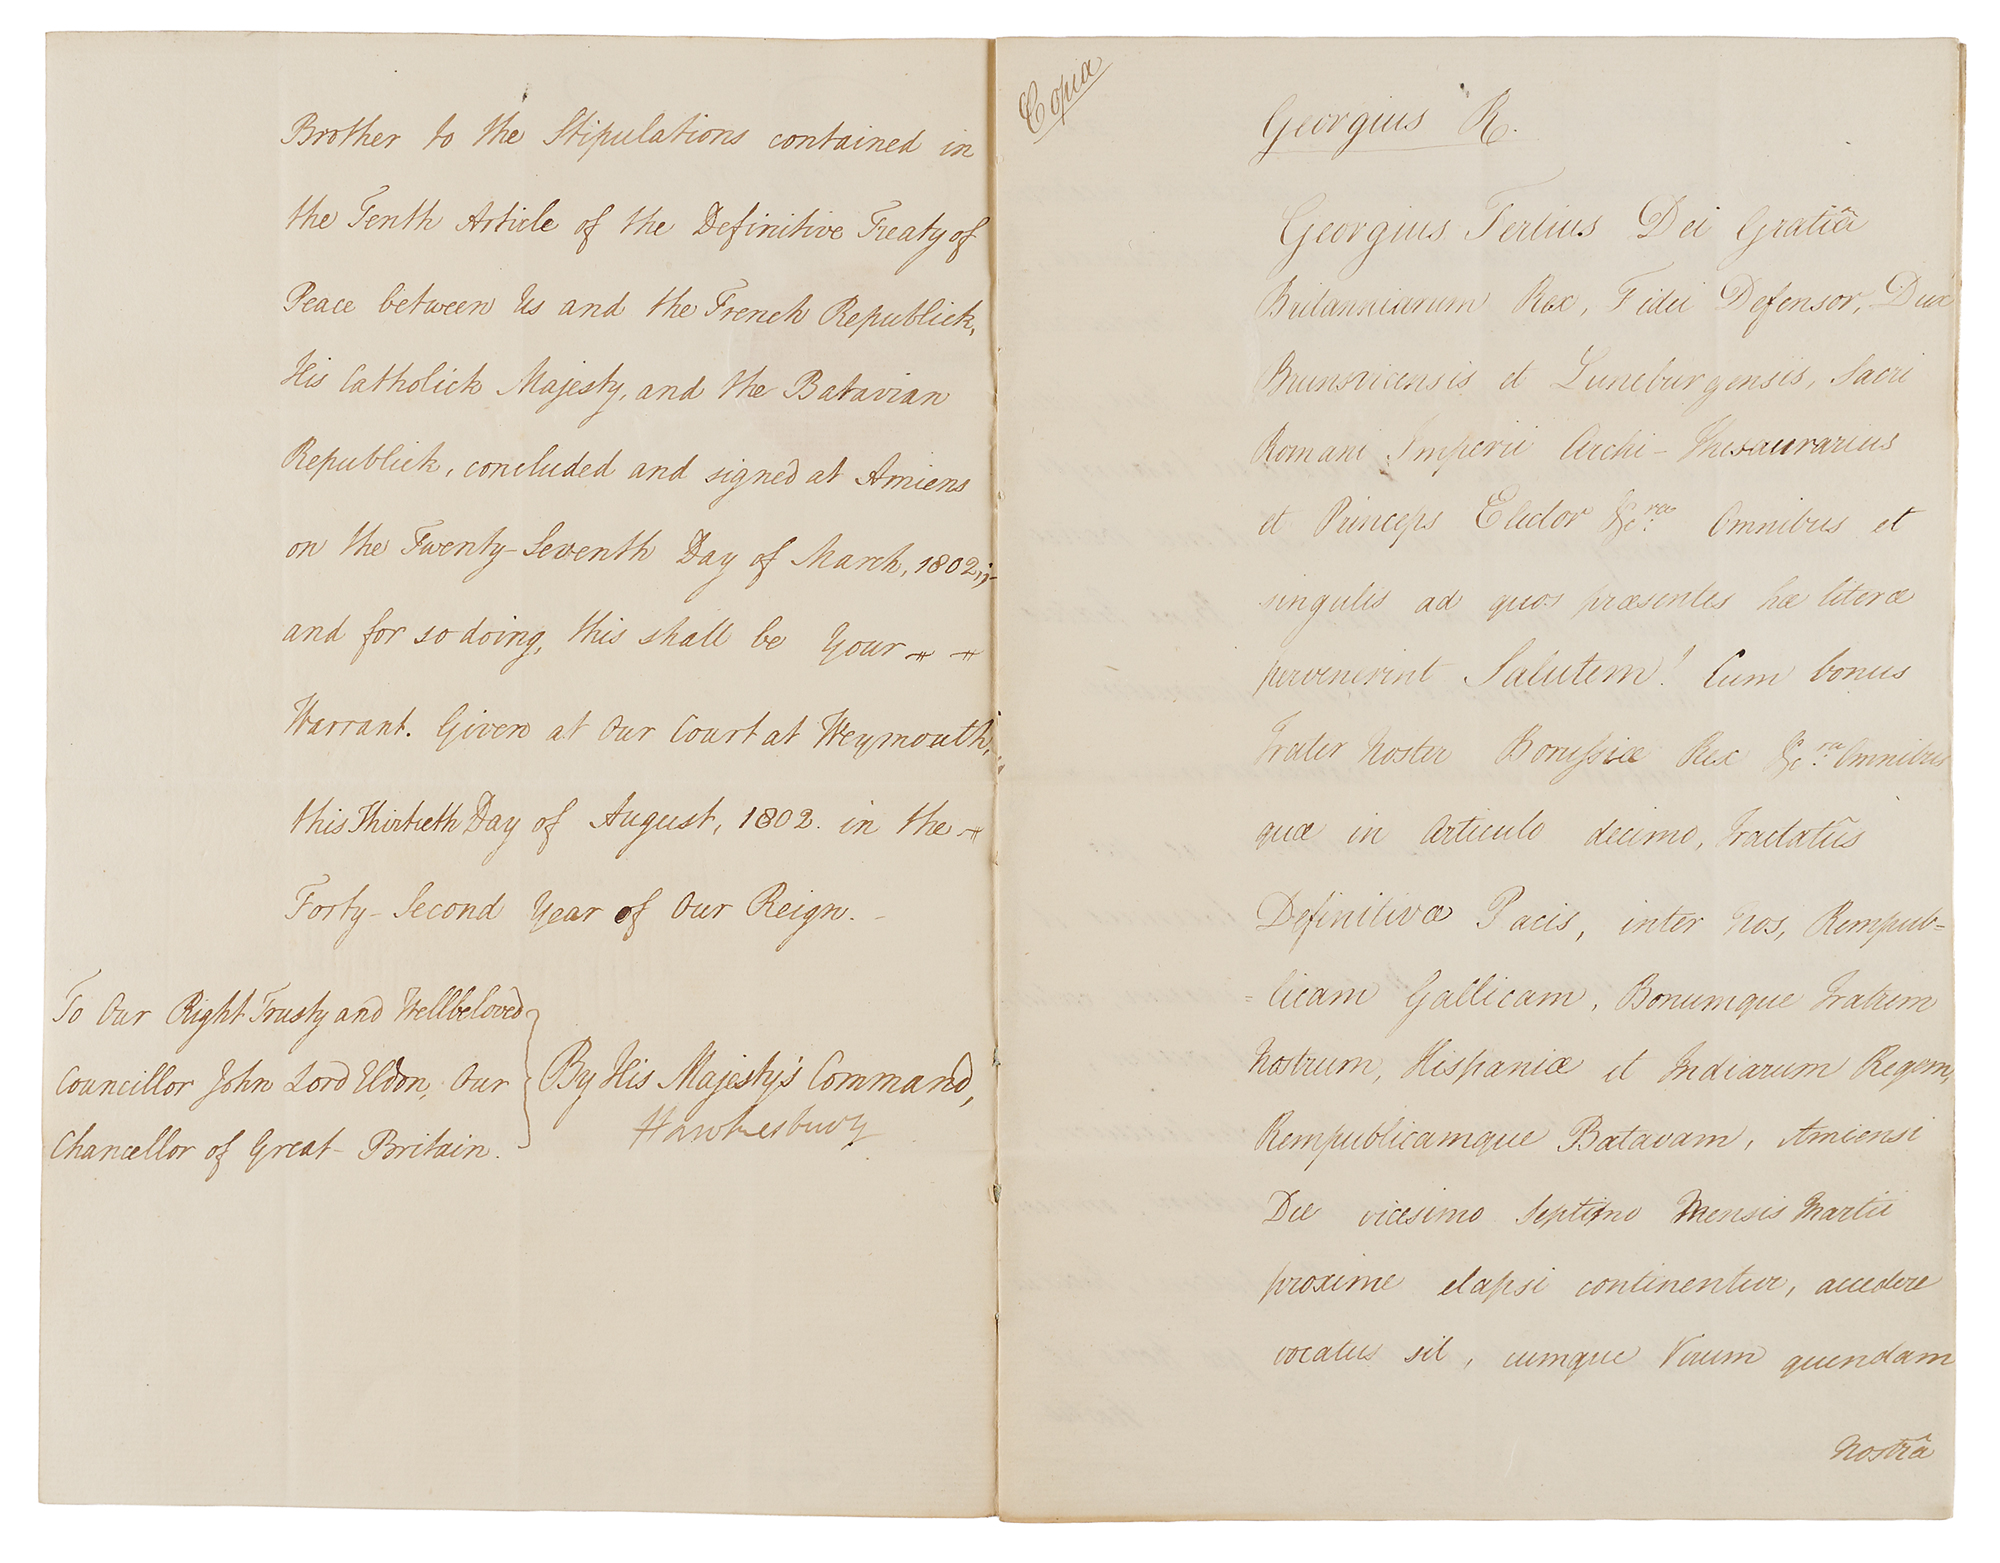 Brother to the Stipulations contained in
the Tenth Article of the Definitive Treaty of
Peace between Us and the French Republick,
His Catholick Majesty, and the Batavian
Republick, concluded and signed at Amiens
on the Twenty-Seventh Day of March, 1802;-
and for so doing, this shall be Your
Warrant. Given at Our Court at Weymouth,
this Thirtieth Day of August, 1802. in the
Forty-Second Year of Our Reign. -
To Our Right Trusty and Wellbeloved
Councillor John Lord Eldon, Our
Chancellor of Great-Britain.
By His Majesty's Command,
Hawkesbury
Copia
Georgius R.
Georgius Tertius Dei Gratiâ
Britanniarum Rex, Fidei Defensor, Dux
Brunsvicensis et Luneburgensis, Sacri
Romani Imperii Archi-Thesaurarius
et Princeps Elector &c.ra Omnibus et
singulis ad quos præsentes hæ literæ
pervenerint Salutem! Cum bonus
Frater Noster Borussiæ Rex &c.ra Omnibus
quæ in Articulo decimo, Tractatûs
Definitivæ Pacis, inter Nos, Rempub=
=licam Gallicam, Bonumque Fratrem
Nostrum, Hispaniæ et Indiarum Regem,
Rempublicamque Batavam, Amiensi
Die vicesimo Septimo Mensis Martii
proxime elapsi continentur, accedere
vocatus sit, cumque Virum quendam
Nostrâ